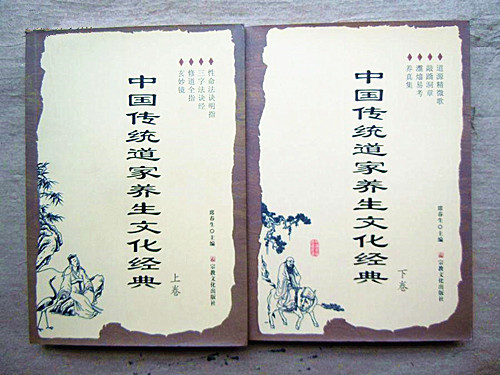 性命法诀明指
三字法诀经
修道全指
玄妙镜
中国传统道家养生文化经典
席春生 主编
宗教文化出版社
上卷
道源精微歌
敲蹻洞章
瀊熻易考
养真集
中国传统道家养生文化经典
席春生 主编
宗教文化出版社
下卷